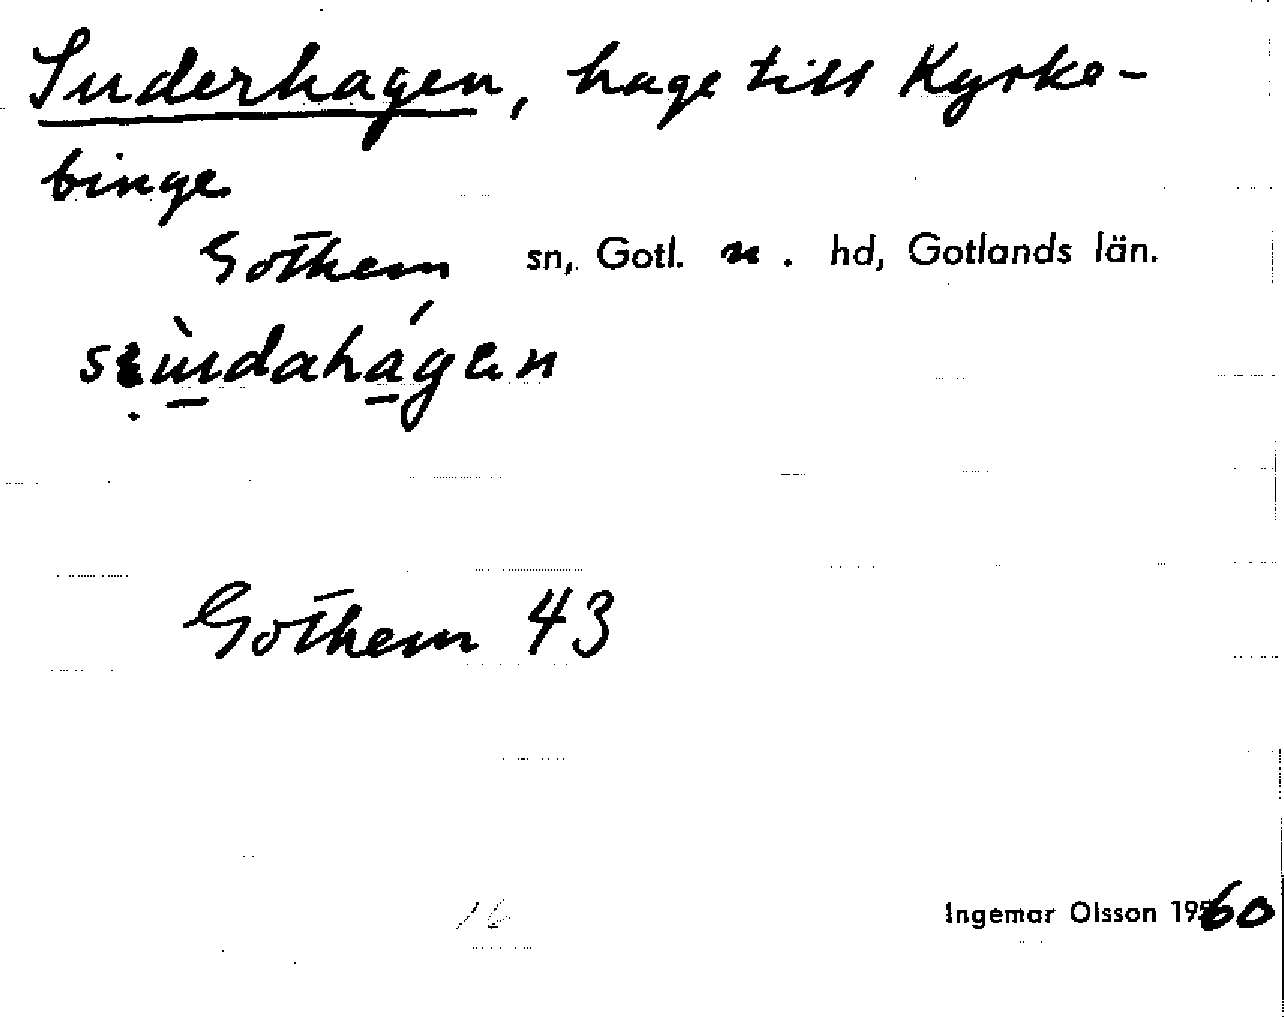 Suderhagen, hage till Kyrke-
binge
Gothem sn, Gotl. n. hd, Gotlands län.
Gothem 43
16
Ingemar Olsson 1960